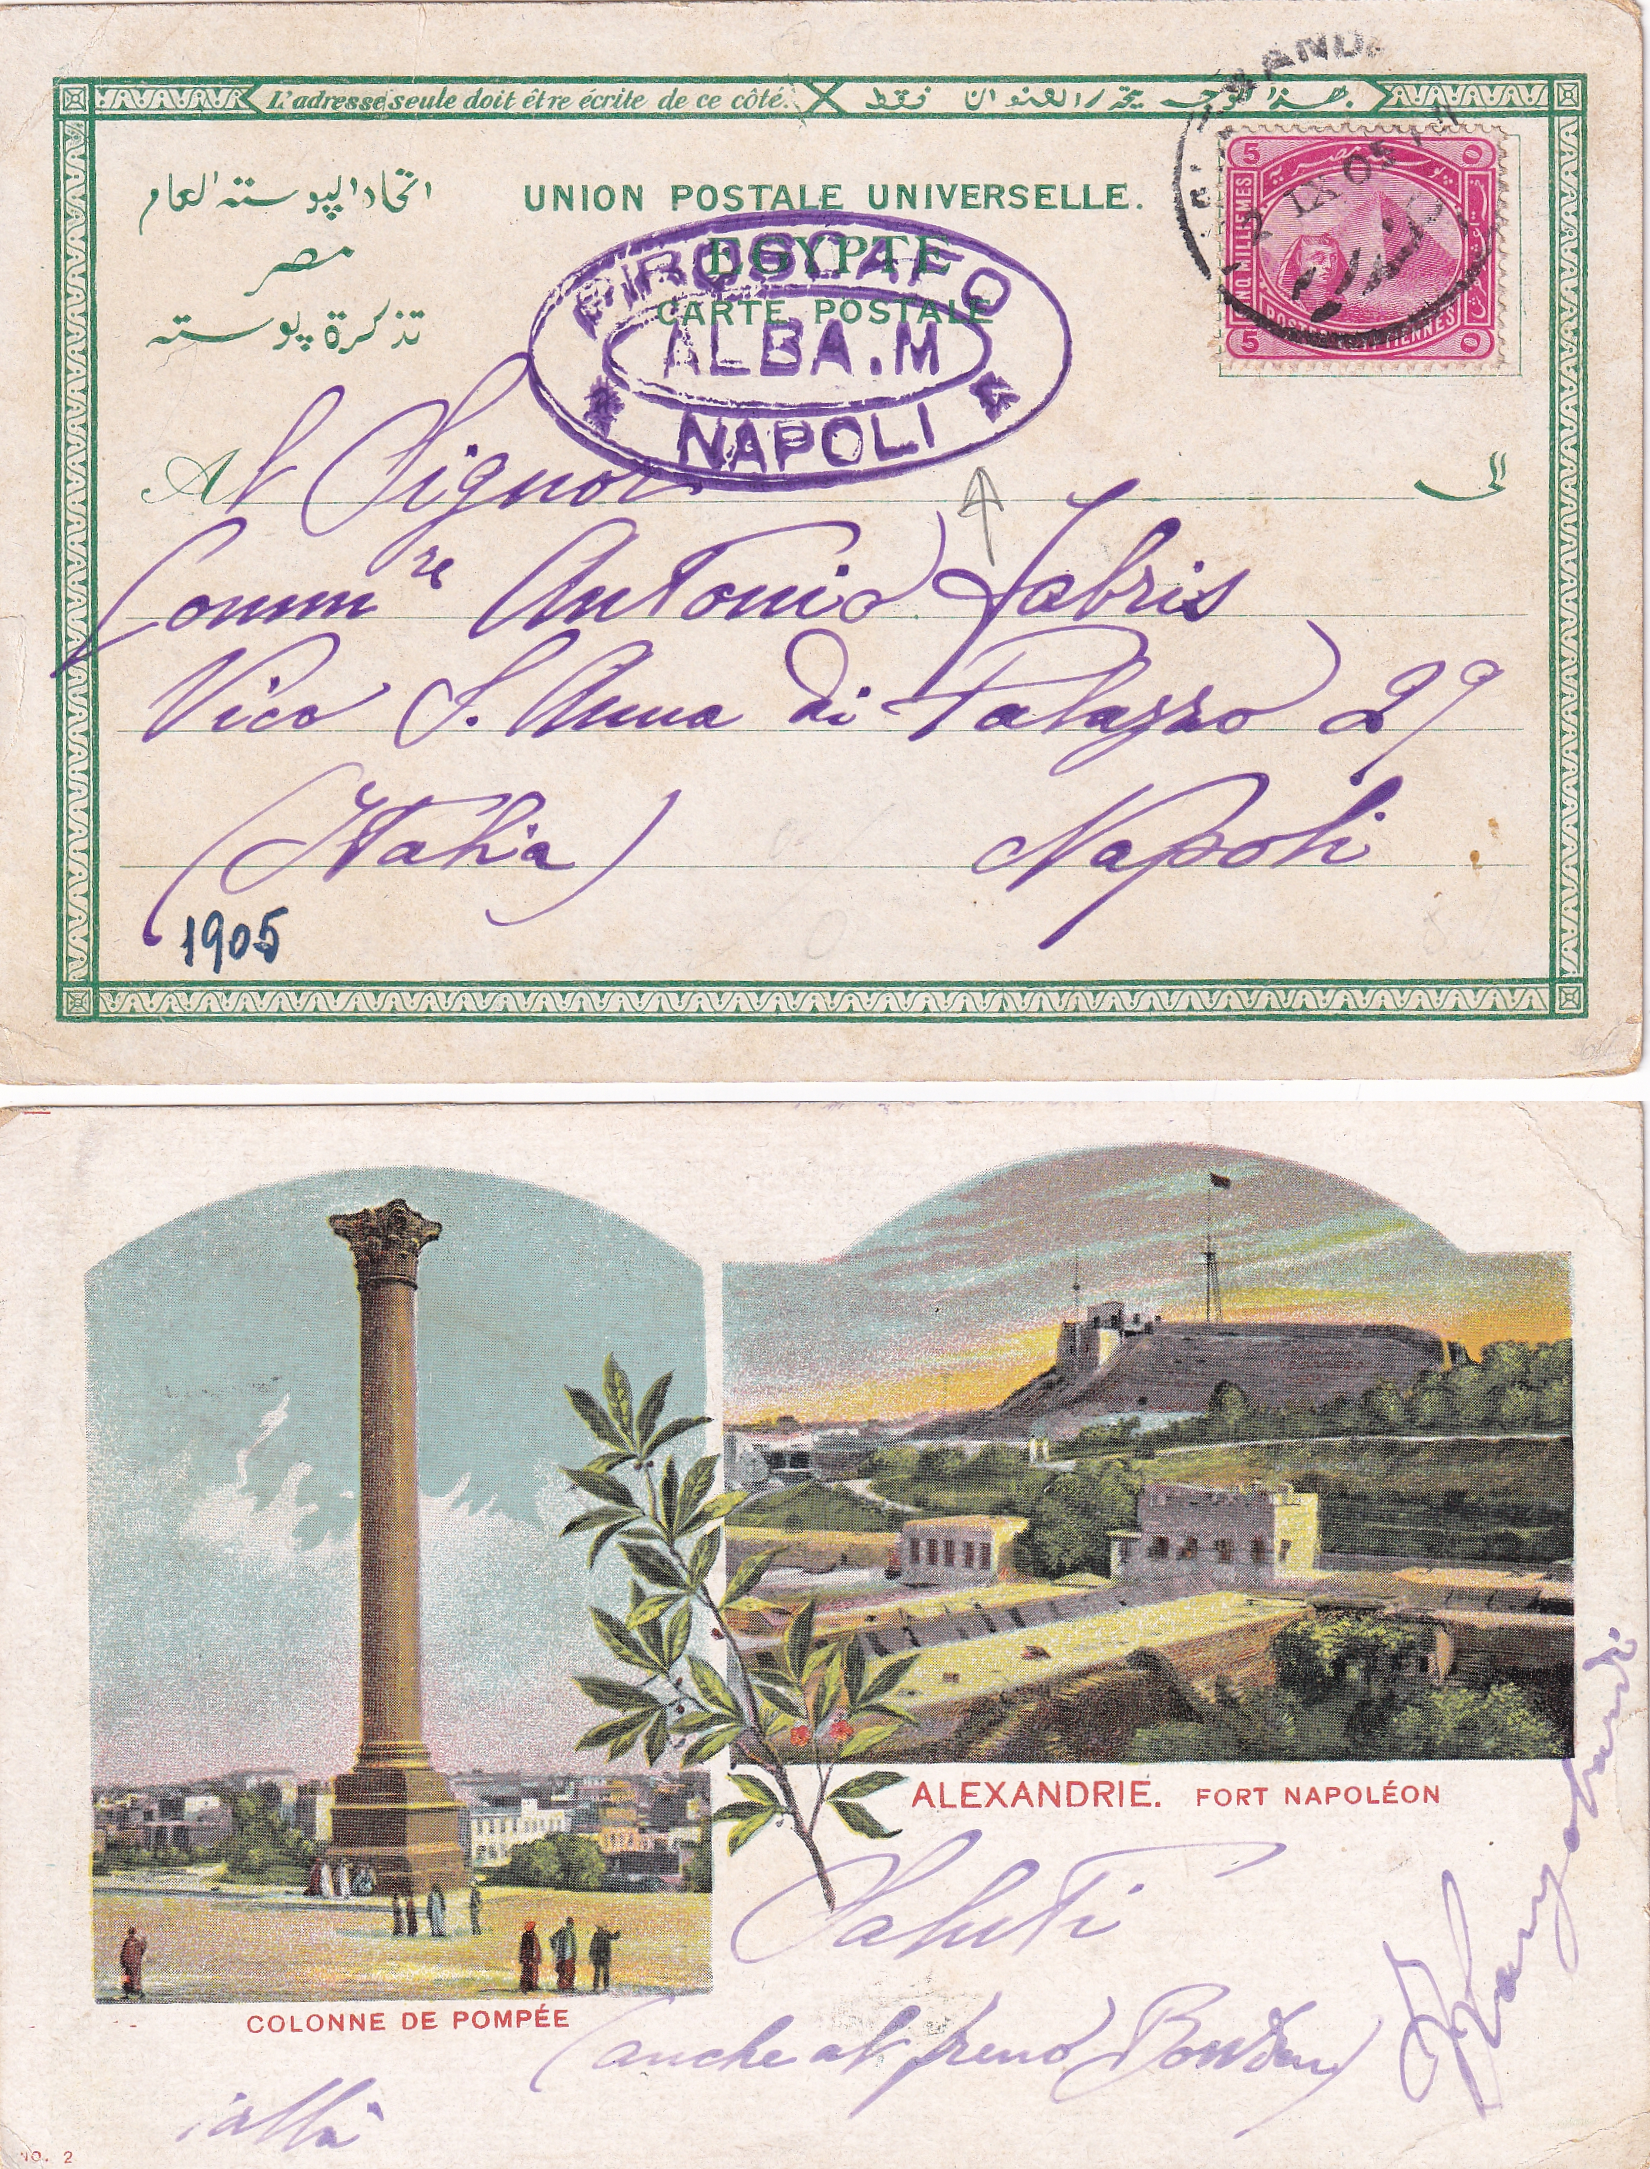 L'adresse seule doit être écrite de ce côté.
بهذا الوجه يحرر العنوان فقط
اتحاد البوسته العام
مصر
تذكرة بوسته
UNION POSTALE UNIVERSELLE.
EGYPTE
CARTE POSTALE
PIROSCAFO
ALBA.M
NAPOLI
5
5
CINQ MILLIEMES
POSTES EGYPTIENNES
5
2 IX 05
Al Signor
الى
Comm.re Antonio Fabris
Vico S. Anna di Palazzo 29
(Italia) Napoli
1905
ALEXANDRIE. FORT NAPOLÉON
COLONNE DE POMPÉE
Saluti
(anche al freno
NO. 2